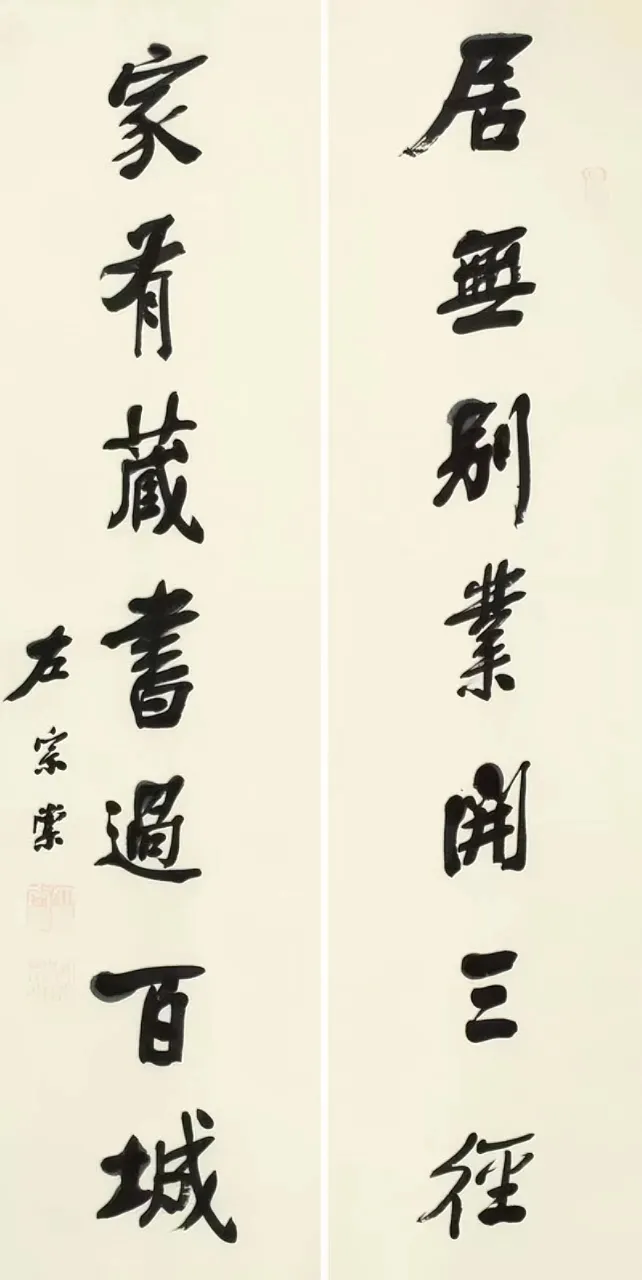 居無別業開三徑
家有藏書過百城
左宗棠